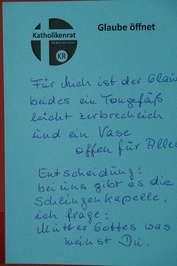 Katholikenrat
KR
Glaube öffnet
Für mich ist der Glau
beides ein Tongefäß
leicht zerbrechlich
und ein Vase
offen für Alle
Entscheidung:
bei uns gibt es die
Schlingenkapelle,
ich frage:
Mutter Gottes was
meinst Du.